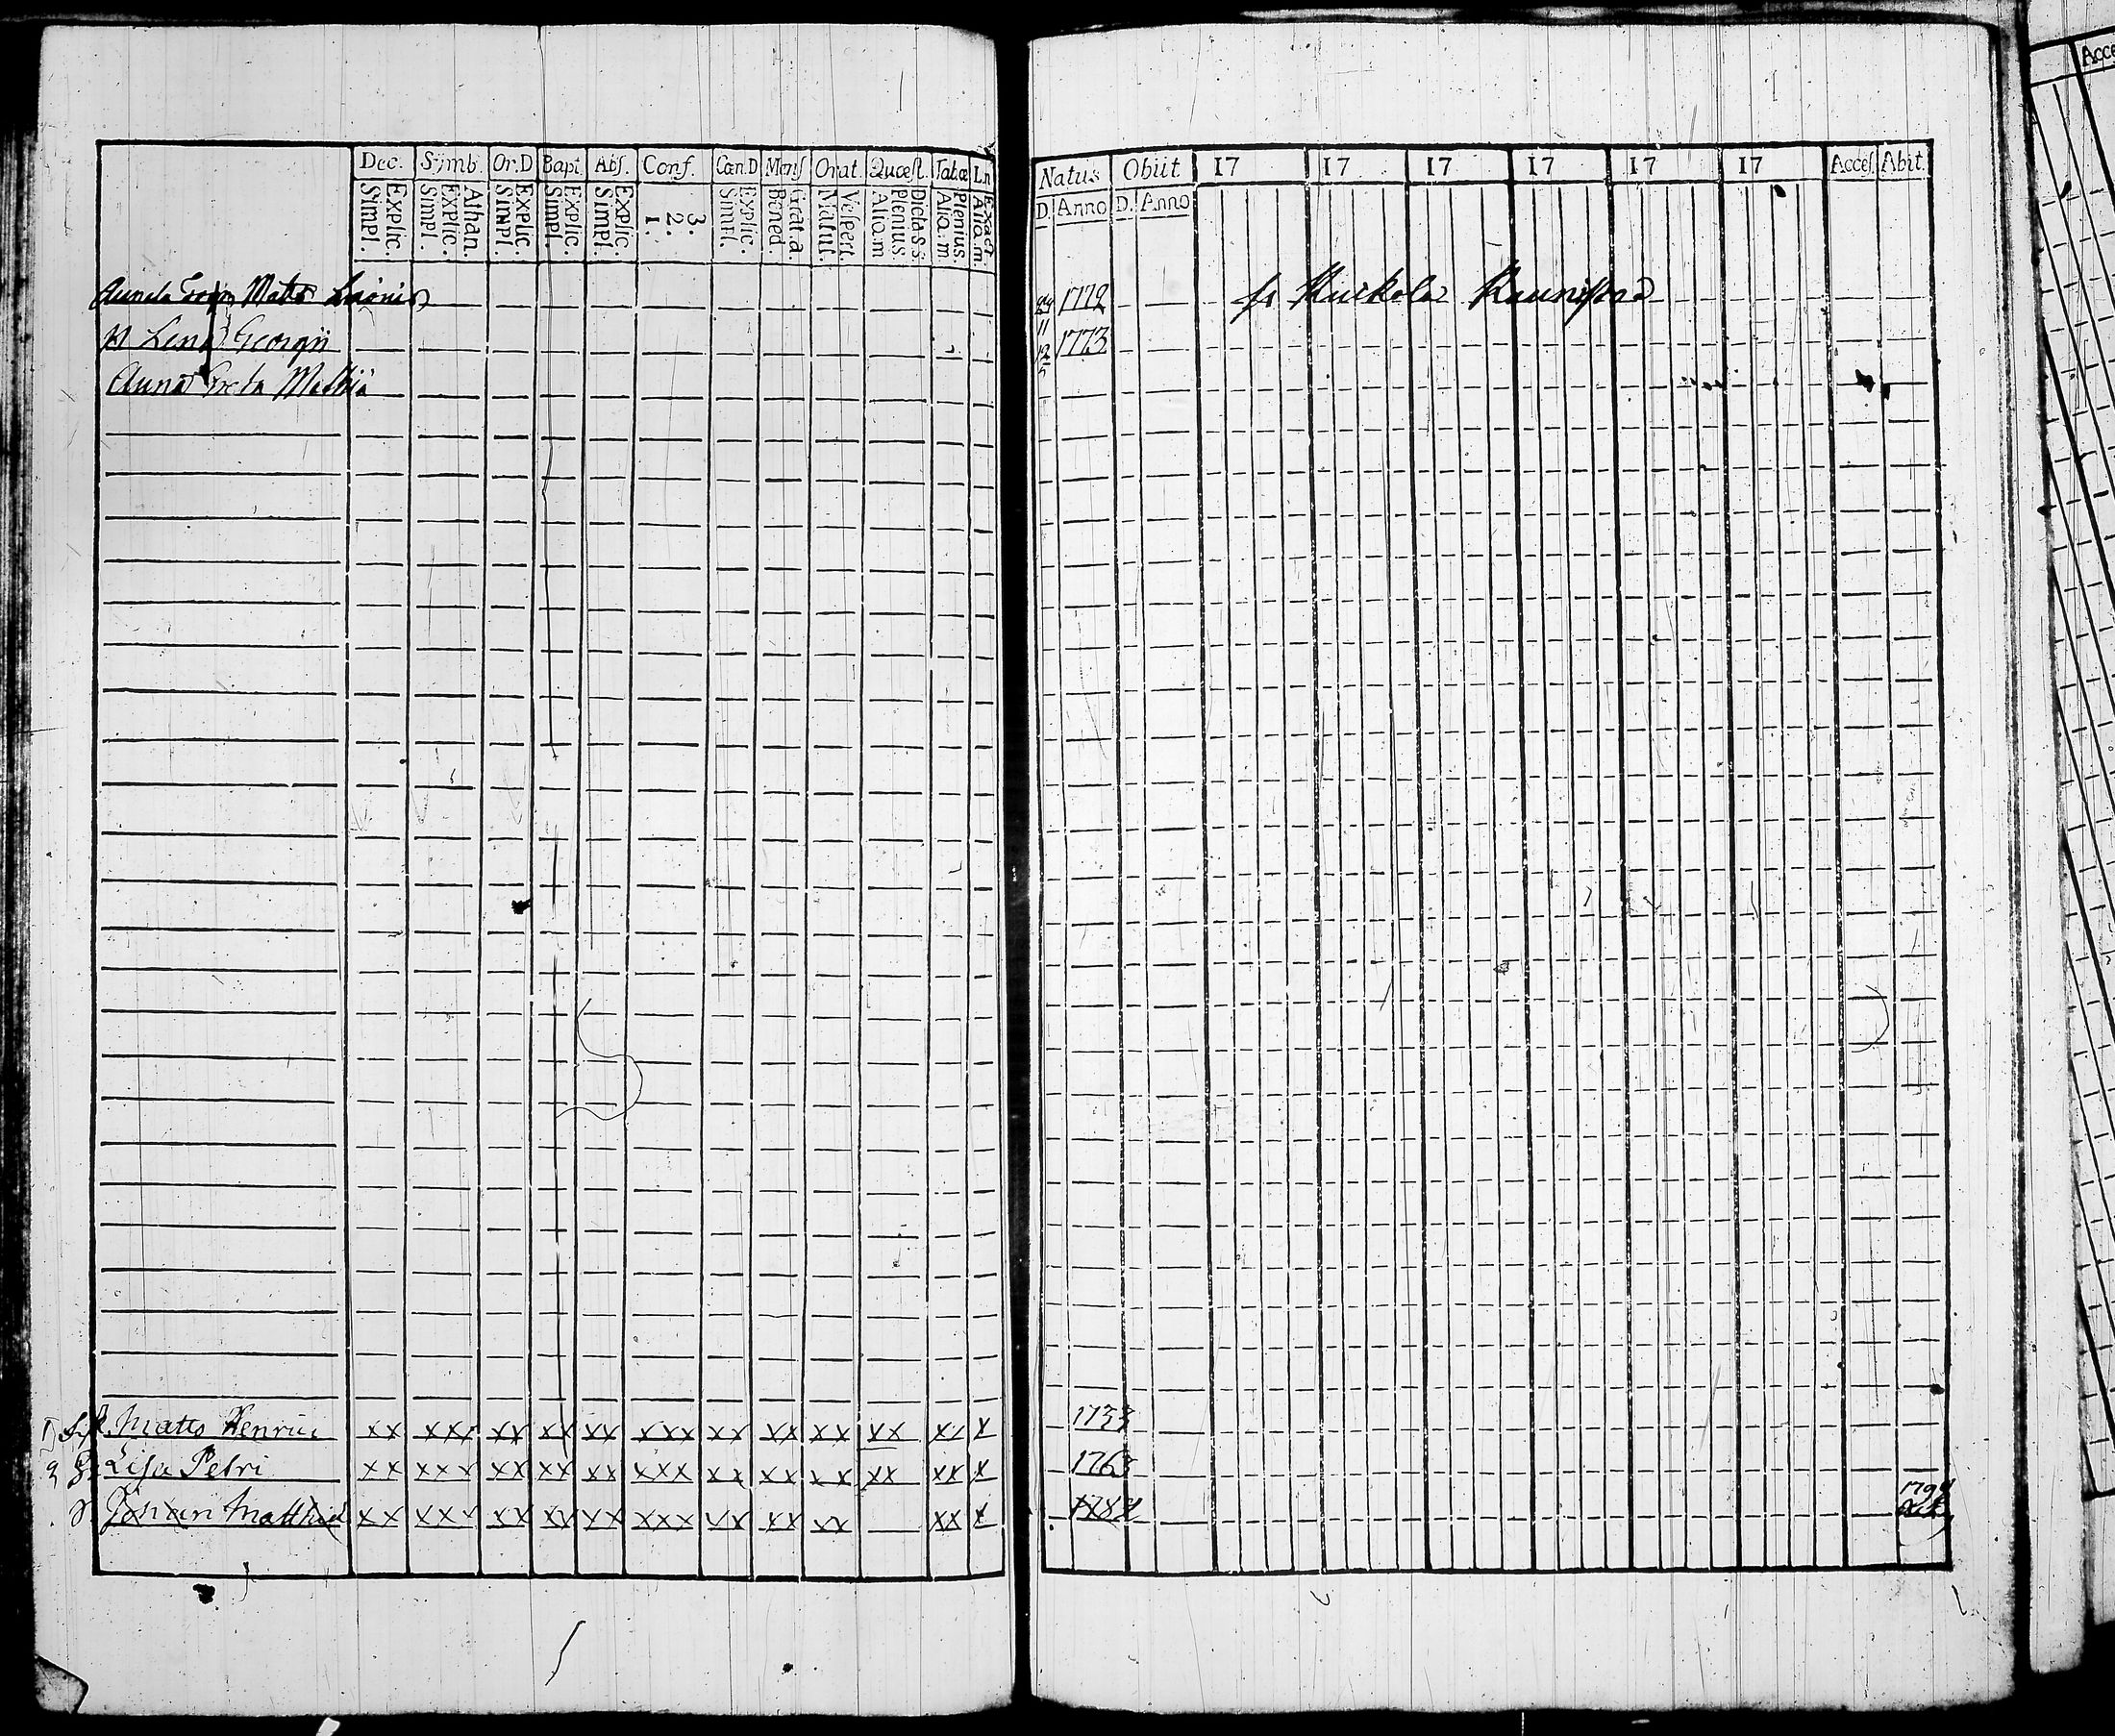 Dec. Symb. Or.D Bapt. Abſ. Conf. Cœn.D Menſ Orat. Quœſt. Tabœ Ln
Explic. Simpl. Athan. Explic. Simpl. Explic. Simpl. Explic. Simpl. Explic. Simpl. 3. 2. 1. Explic. Simpl. Grat.a. Bened. Veſpert. Matut. Dicta S.S. Plenius Alio.m Plenius Alio.m Exact Alio.m.
Matts
H Lena Georgii
Anna Greta Matthiæ
Matts Henrici xx xxx xx xx xx xxx xx xx xx xx xx x
Liſa Petri xx xxx xx xx xx xxx xx xx xx xx xx x
Johan Matthiæ xx xxx xx xx xx xxx xx xx xx xx x
Natus Obiit 17 17 17 17 17 17 Acceſ. Abit.
D. Anno D. Anno
1772 fr
11
1773
12
5
1733
1763
Acce